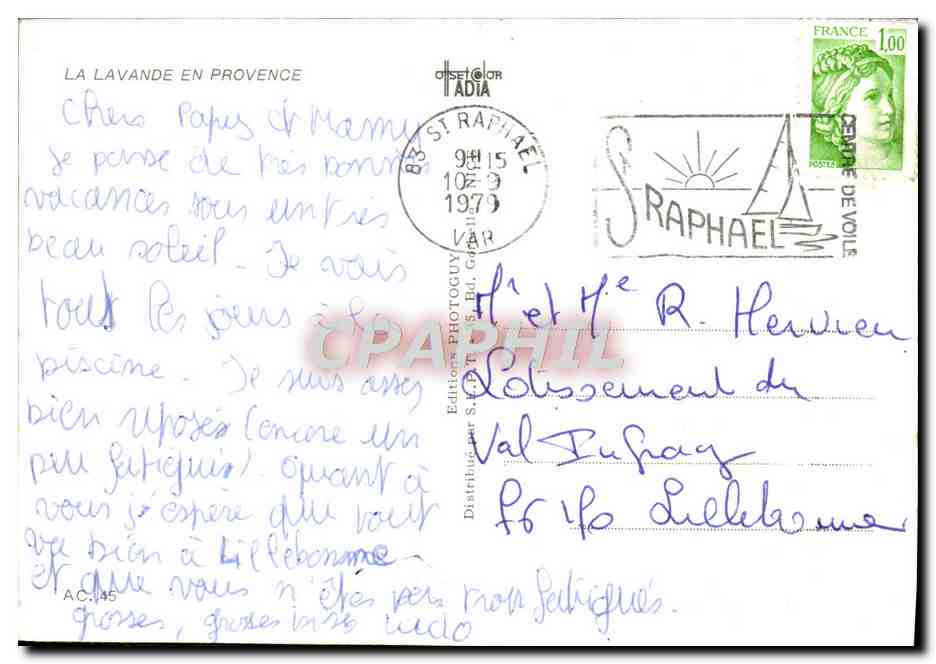 LA LAVANDE EN PROVENCE
OFFSET COLOR
IADIA
FRANCE 1,00
POSTES
83 ST RAPHAEL
9H 15
10-9
1979
VAR
ST RAPHAEL
CENTRE DE VOILE
Chers Papy et Mamy
Je passe de très bonnes
vacances sous un très
beau soleil. Je vais
tout les jours à la
piscine. Je suis assez
bien reposés (encore un
peu fatigués). quant à
vous j'espère que tout
va bien à Lillebonne
et que vous n'êtes pas trop fatigués.
grosses, grosses bises
AC. 45
Editions PHOTOGUY
Distribué par S.E.P.T. 45, Bd.
CPAPHIL
Mr et Me R. Hervieu
Lotissement du
Val Infray
76170 Lillebonne